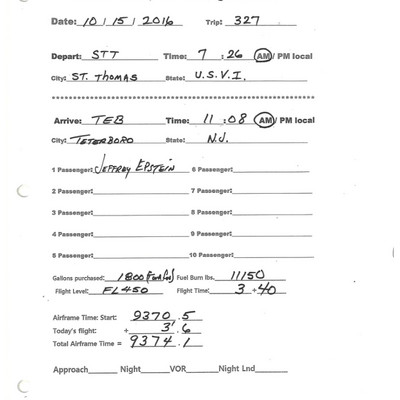 Date: 10 / 15 / 2016 Trip: 327
Depart: STT Time: 7 : 26 AM / PM local
City: ST. THOMAS State: U.S.V.I.
Arrive: TEB Time: 11 : 08 AM / PM local
City: TETERBORO State: N.J.
1 Passenger: JEFFREY EPSTEIN 6 Passenger:
2 Passenger: 7 Passenger:
3 Passenger: 8 Passenger:
4 Passenger: 9 Passenger:
5 Passenger: 10 Passenger:
Gallons purchased: 1800 Fuel Burn lbs. 11150
Flight Level: FL450 Flight Time: 3 + 40
Airframe Time: Start: 9370 .5
Today's flight: + 3 .6
Total Airframe Time = 9374 .1
Approach Night VOR Night Lnd